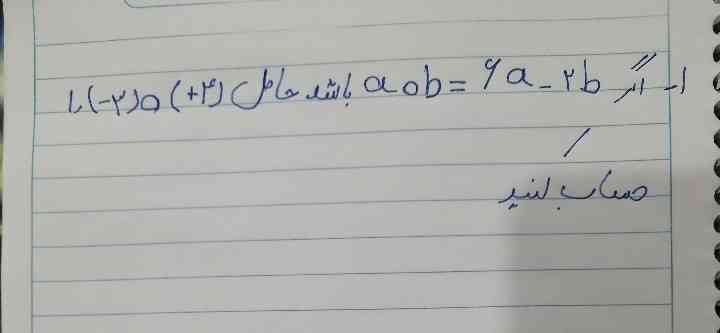 ۱- اگر a o b = ۶a - ۲b باشد حاصل (+۴) o (-۲) را
حساب کنید